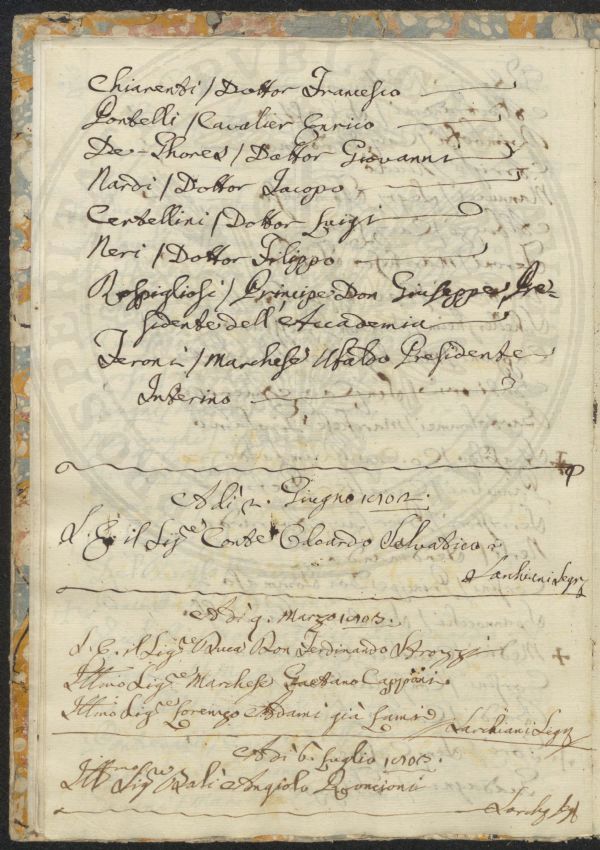 Chiarenti / Dottor Francesco
Pontelli / Cavalier Enrico
De-Ghores / Dottor Giovanni
Nardi / Dottor Iacopo
Certellini / Dottor Luigi
Neri / Dottor Filippo
Rospigliosi / Principe Don Giuseppe Pre-
sidente dell'Accademia
Feroni / Marchese Ubaldo Presidente
Interino
Adì 2. Giugno
S. E. il Sig.re Conte Odoardo Salvatico
Lanhiani Segr.
Adì 9. Marzo
S. E. il Sig.re Duca Don Ferdinando Strozzi
Ill̃mo Sig.re Marchese Gaetano Capponi
Ill̃mo Sig.re Lorenzo Adami già Lami
Lanhiani Segr.
Adì 6. Luglio
Ill̃mo Sig.re Balì Angiolo Roncioni